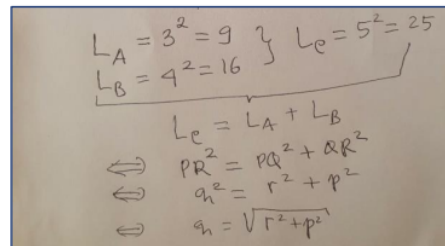 L_A = 3² = 9
L_B = 4² = 16 } L_C = 5² = 25
L_C = L_A + L_B
⟺ PR² = PQ² + QR²
⟺ q² = r² + p²
⟺ q = √(r² + p²)